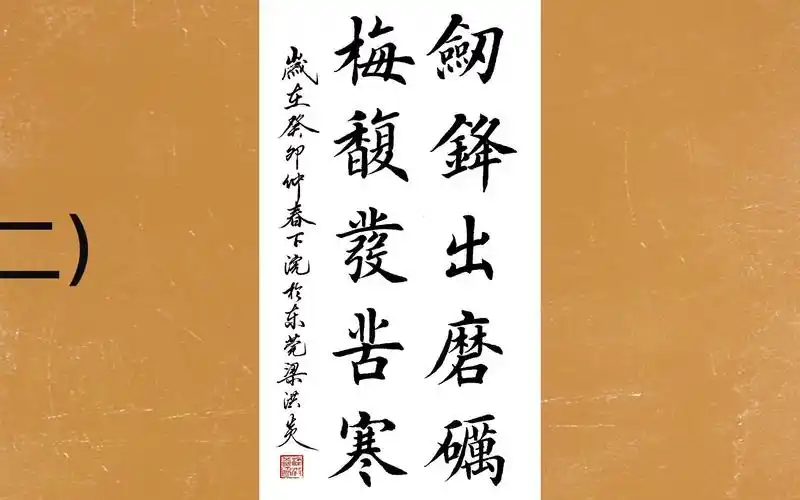 劒鋒出磨礪
梅馥發苦寒
歲在癸卯仲春下浣於东莞梁洪炎
二)